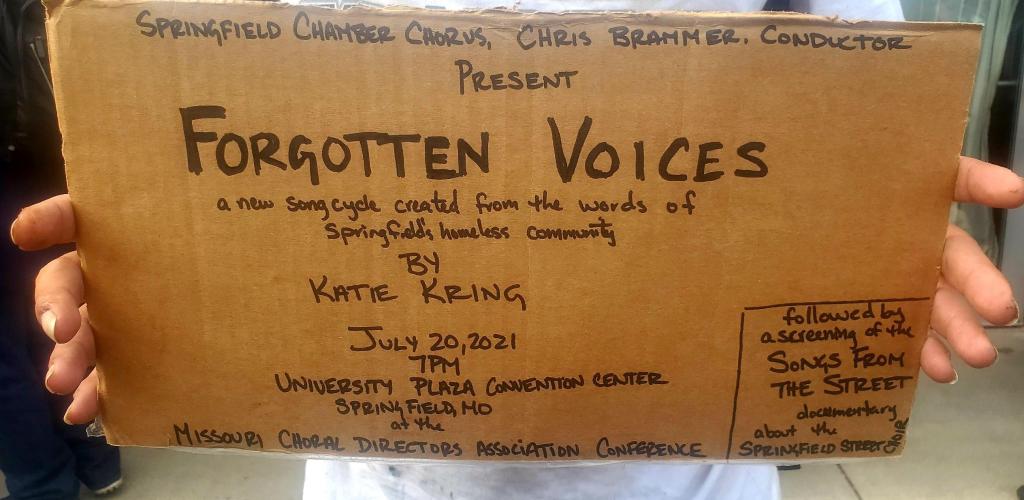 SPRINGFIELD CHAMBER CHORUS, CHRIS BRAMMER. CONDUCTOR
PRESENT
FORGOTTEN VOICES
a new song cycle created from the words of
Springfield's homeless community
BY
KATIE KRING
JULY 20, 2021
7PM
UNIVERSITY PLAZA CONVENTION CENTER
SPRINGFIELD, MO
at the
MISSOURI CHORAL DIRECTORS ASSOCIATION CONFERENCE
followed by
a screening of the
SONGS FROM
THE STREET
documentary
about the
SPRINGFIELD STREET CHOIR